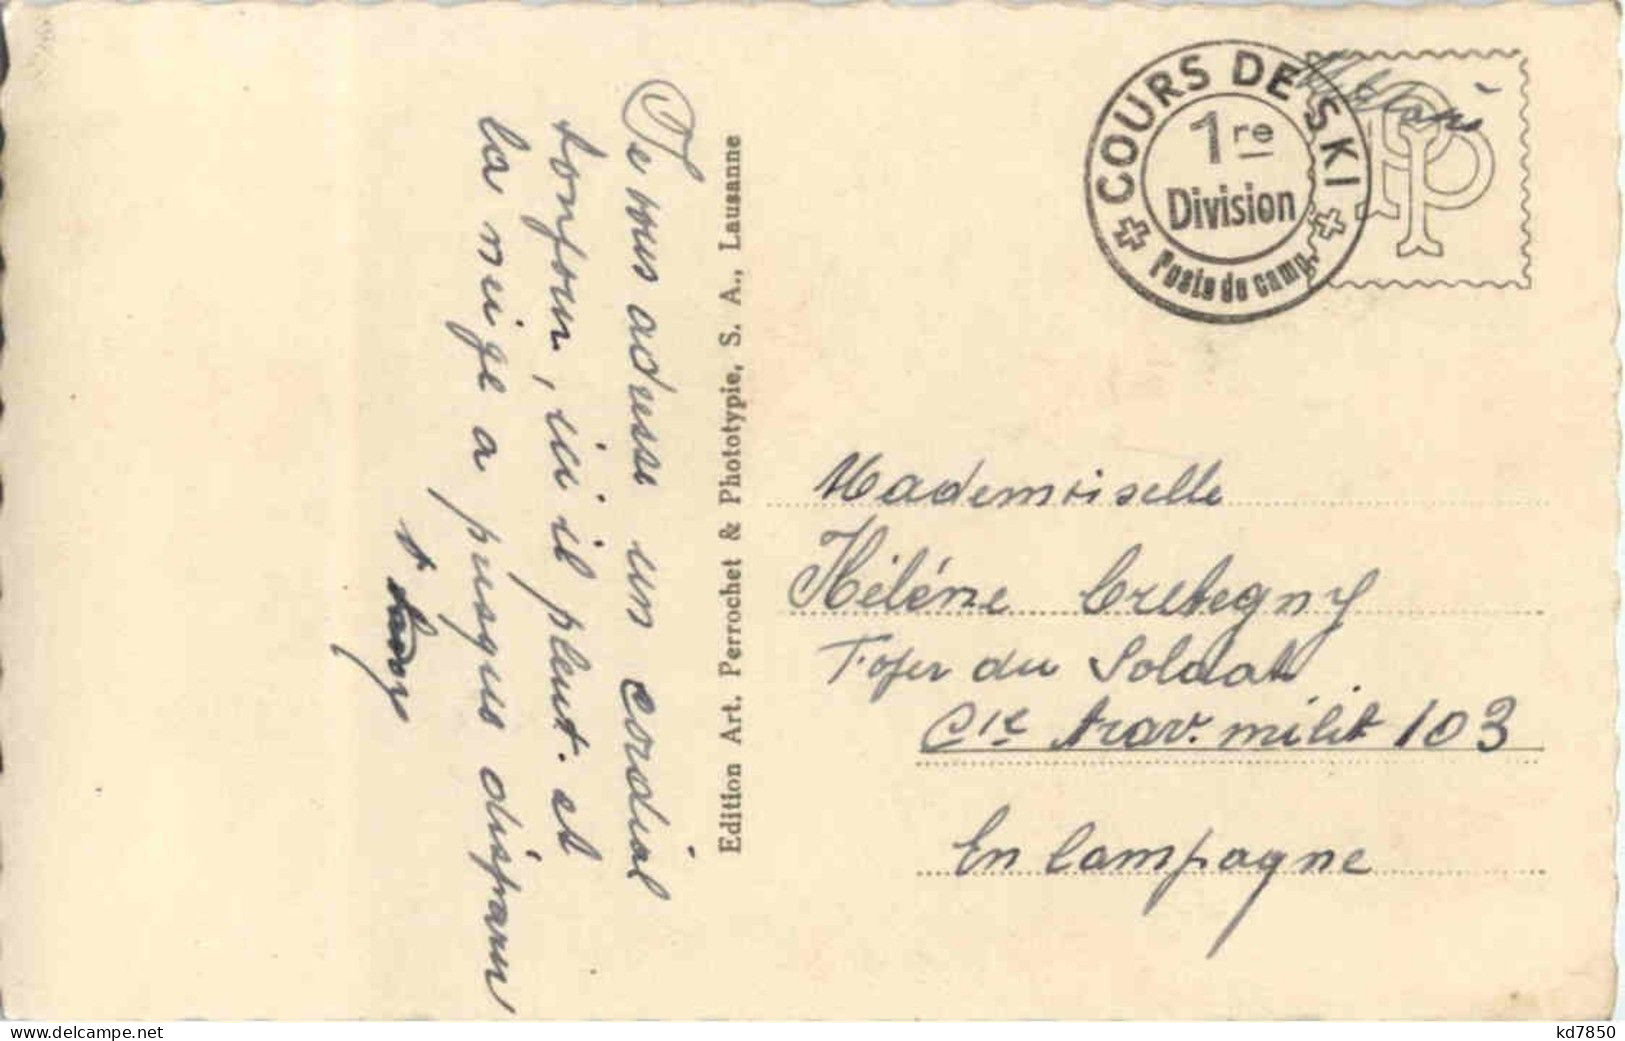 Je vous adresse un cordial
bonjour, ici il pleut. et
la neige a presque disparu
Edition Art. Perrochet & Phototypie, S. A., Lausanne
COURS DE SKI
1re
Division
Poste de camp.
Militaire
PP
Mademoiselle
Hélène Cretegny
Foyer du Soldat
Cie trav. milit 103
En Campagne
kd7850